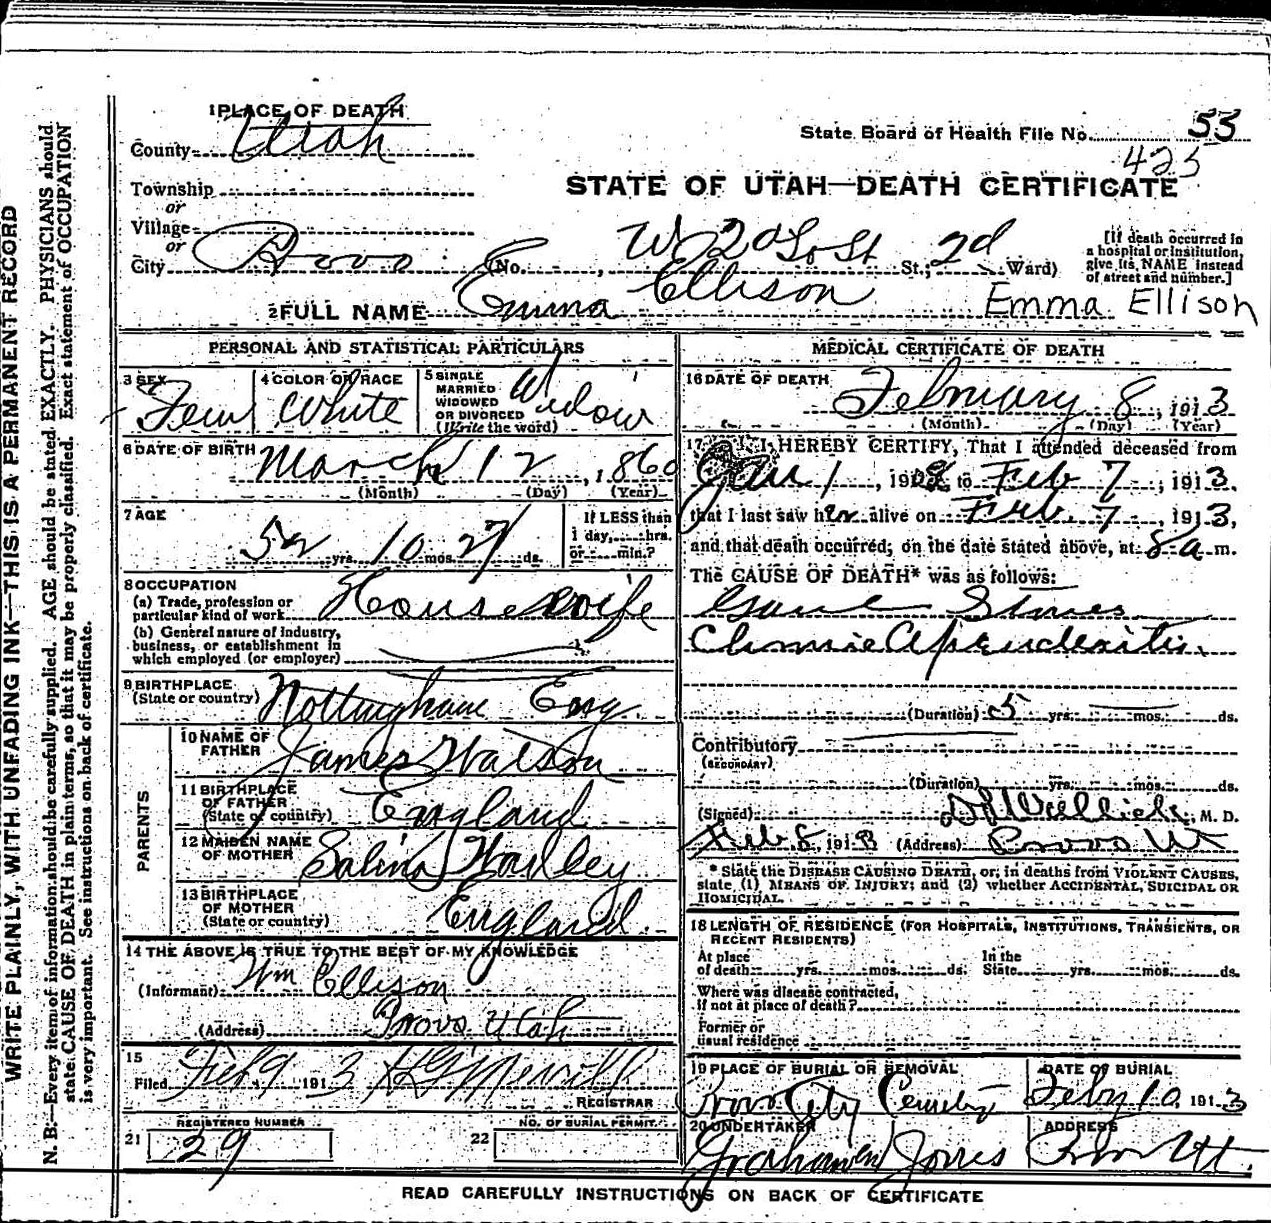 WRITE PLAINLY, WITH UNFADING INK—THIS IS A PERMANENT RECORD
N. B.—Every item of information should be carefully supplied. AGE should be stated EXACTLY. PHYSICIANS should
state CAUSE OF DEATH in plain terms, so that it may be properly classified. Exact statement of OCCUPATION
is very important. See instructions on back of certificate.
1 PLACE OF DEATH
County Utah
State Board of Health File No. 53
425
Township
or
Village
or
City Provo
STATE OF UTAH—DEATH CERTIFICATE
(No. , W 2d So St St.; 2d Ward)
[If death occurred in
a hospital or institution,
give its NAME instead
of street and number.]
2 FULL NAME Emma Ellison Emma Ellison
PERSONAL AND STATISTICAL PARTICULARS
3 SEX
Fem
4 COLOR OR RACE
White
5 SINGLE
MARRIED
WIDOWED
OR DIVORCED
(Write the word)
Widow
6 DATE OF BIRTH
March 12, 1860
(Month) (Day) (Year)
7 AGE
52 yrs. 10 mos. 27 ds.
If LESS than
1 day, hrs.
or min.?
8 OCCUPATION
(a) Trade, profession or
particular kind of work
Housewife
(b) General nature of industry,
business, or establishment in
which employed (or employer)
9 BIRTHPLACE
(State or country)
Nottingham Eng.
PARENTS
10 NAME OF
FATHER
James Watson
11 BIRTHPLACE
OF FATHER
(State or country)
England
12 MAIDEN NAME
OF MOTHER
Salina
13 BIRTHPLACE
OF MOTHER
(State or country)
England
14 THE ABOVE IS TRUE TO THE BEST OF MY KNOWLEDGE
(Informant) Wm Ellison
(Address) Provo Utah
15
Filed Feb 9 1913
REGISTRAR
REGISTERED NUMBER
21 29
NO. OF BURIAL PERMIT
22
MEDICAL CERTIFICATE OF DEATH
16 DATE OF DEATH
February 8, 1913
(Month) (Day) (Year)
17 I HEREBY CERTIFY, That I attended deceased from
Jan 1, 191 to Feb 7, 1913,
that I last saw her alive on Feb. 7, 1913,
and that death occurred, on the date stated above, at 8 a m.
The CAUSE OF DEATH* was as follows:
Gaul Stones
Chronic Apendcitis
(Duration) 5 yrs. mos. ds.
Contributory
(SECONDARY)
(Duration) yrs. mos. ds.
(Signed) M. D.
Feb. 8, 1913 (Address) Provo Ut
* State the DISEASE CAUSING DEATH, or, in deaths from VIOLENT CAUSES,
state (1) MEANS OF INJURY; and (2) whether ACCIDENTAL, SUICIDAL OR
HOMICIDAL.
18 LENGTH OF RESIDENCE (FOR HOSPITALS, INSTITUTIONS, TRANSIENTS, OR
RECENT RESIDENTS)
At place
of death yrs. mos. ds.
In the
State yrs. mos. ds.
Where was disease contracted,
if not at place of death?
Former or
usual residence
19 PLACE OF BURIAL OR REMOVAL
Provo City Cemetery
DATE OF BURIAL
Feby 10, 1913
20 UNDERTAKER
Jones
ADDRESS
Provo Ut.
READ CAREFULLY INSTRUCTIONS ON BACK OF CERTIFICATE